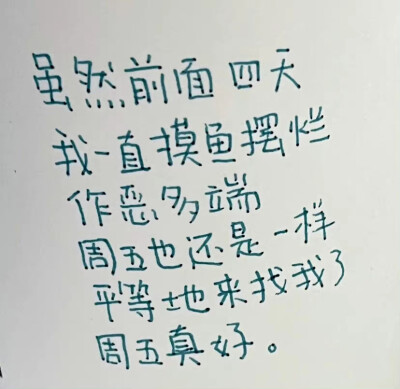 虽然前面四天
我一直摸鱼摆烂
作恶多端
周五也还是一样
平等地来找我了
周五真好。